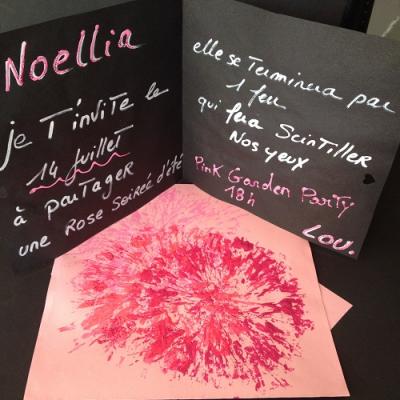 Noellia
je T'invite le
14 Juillet
à partager
une Rose Soirée d'été
elle se Terminera par
1 feu
qui fera Scintiller
Nos yeux
Pink Garden Party
18h
Lou.